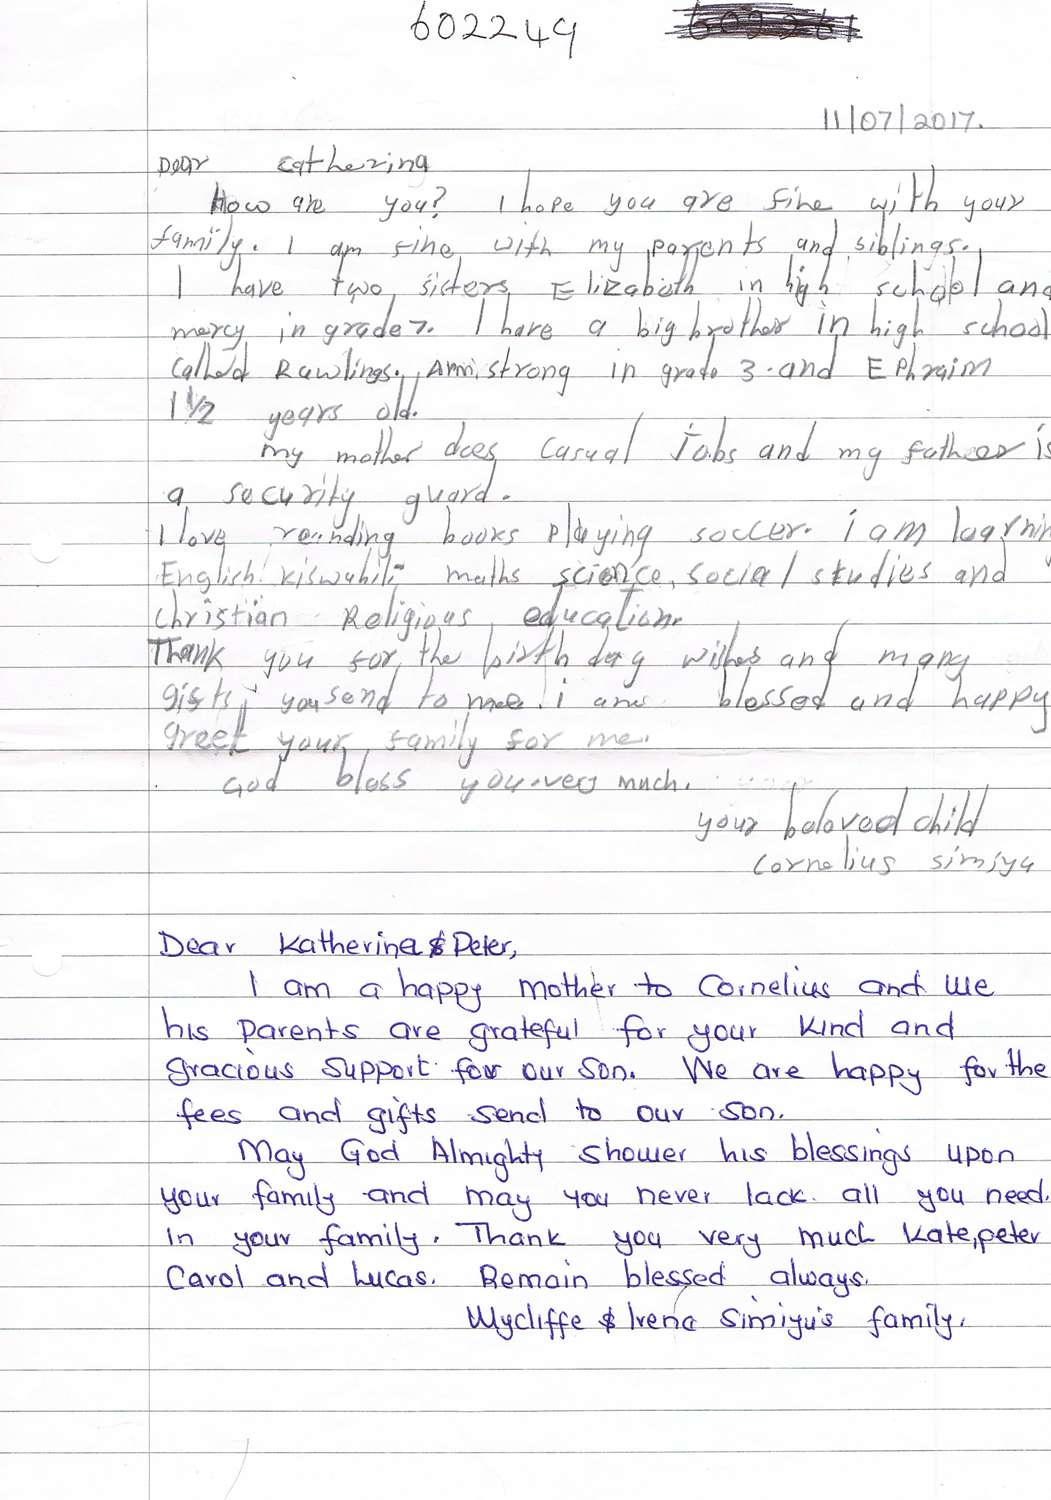 602249
11/07/2017.
Dear Catherina
How are you? I hope you are fine with your
family. I am fine with my parents and siblings.
I have two sisters Elizabeth in high school and
mercy in grade 7. I have a big brother in high school
called Rawlings. Armstrong in grade 3. and Ephraim
1 1/2 years old.
my mother does casual Jobs and my father is
a security guard.
I love reading books playing soccer. i am learnin
English kiswahili maths science, social studies and
christian Religious education.
Thank you for the birth day wishes and many
gifts you send to me. i am blessed and happy
greet your family for me.
God bless you very much.
your beloved child
Cornelius simiyu
Dear Katherine & Peter,
I am a happy mother to Cornelius and we
his parents are grateful for your kind and
gracious support for our son. We are happy for the
fees and gifts send to our son.
May God Almighty shower his blessings upon
your family and may you never lack all you need.
in your family. Thank you very much Kate, peter
Carol and Lucas. Remain blessed always.
Wycliffe & Irene Simiyu's family.